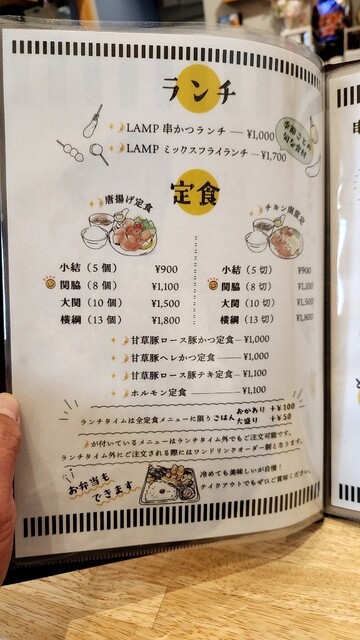 ランチ
LAMP 串かつランチ — ¥1,000
LAMP ミックスフライランチ — ¥1,700
季節ごとの
旬な食材
定食
唐揚げ定食
小結（5 個） ¥900
関脇（8 個） ¥1,100
大関（10 個） ¥1,500
横綱（13 個） ¥1,800
チキン南蛮定
小結（5 切） ¥900
関脇（8 切） ¥1,100
大関（10 切） ¥1,500
横綱（13 切） ¥1,800
甘草豚ロース豚かつ定食 — ¥1,000
甘草豚ヘレかつ定食 — ¥1,000
甘草豚ロース豚テキ定食 — ¥1,100
ホルモン定食 — ¥1,100
ランチタイムは全定食メニューに限りごはん おかわり +¥100
大盛り +¥50
が付いているメニューはランチタイム外でもご注文可能です。
ランチタイム外にご注文される際にはワンドリンクオーダー制となります。
お弁当も
できます
冷めても美味しいが自慢！
テイクアウトでもぜひご賞味ください